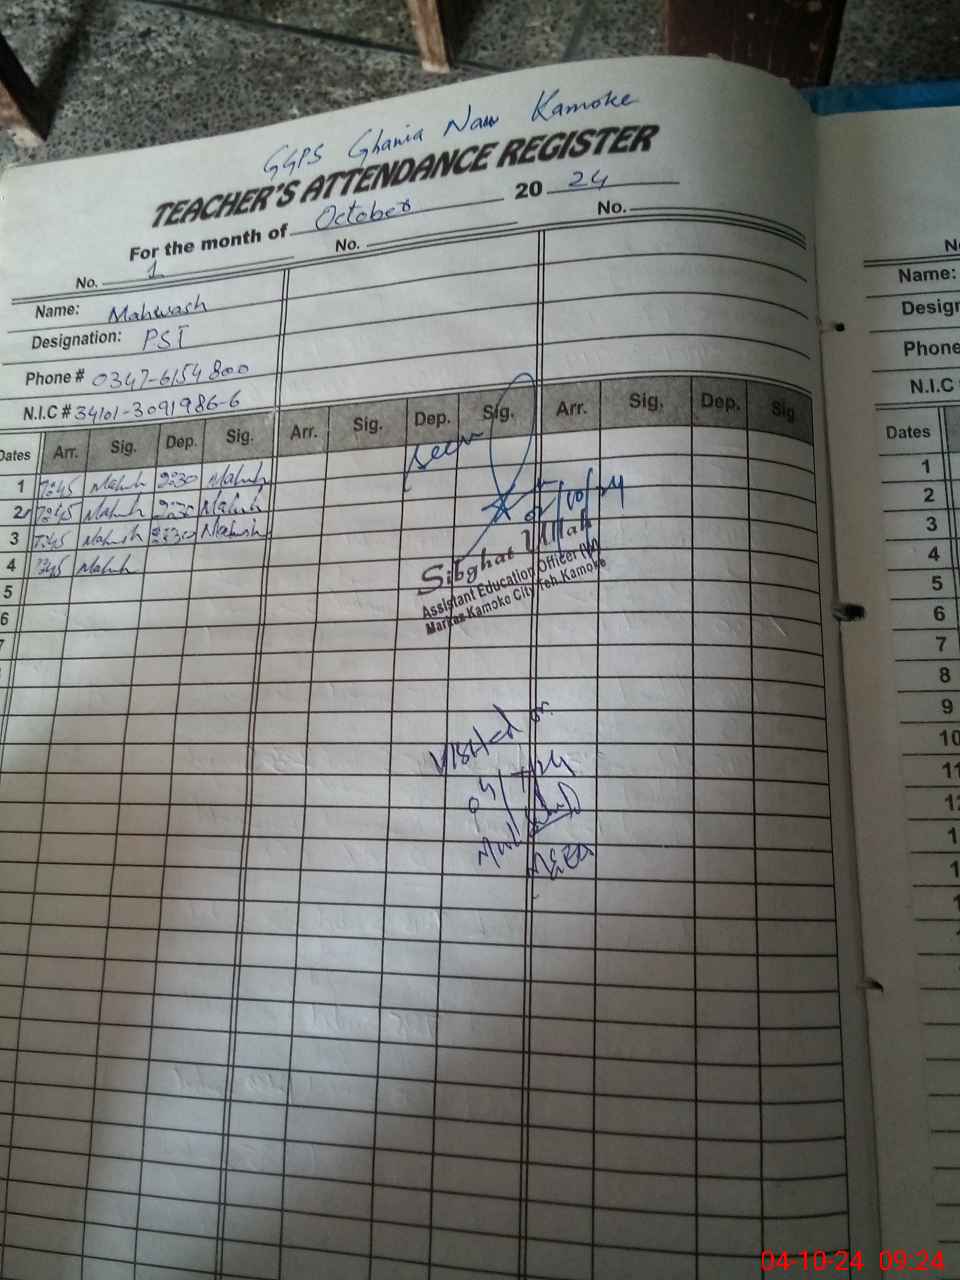 GGPS Ghania Naw Kamoke
TEACHER'S ATTENDANCE REGISTER
For the month of October 20 24
No. 1 No. No.
Name: Mahwash
Designation: PST
Phone # 0347-6154800
N.I.C # 34101-3091986-6
Dates Arr. Sig. Dep. Sig. Arr. Sig. Dep. Sig. Arr. Sig. Dep. Sig.
Seen
1 7:45 Mahwsh 2:30 Mahwsh
2 7:45 Mahwsh 2:30 Mahwsh
02/10/24
3 7:45 Mahwsh 2:30 Mahwsh
4 7:45 Mahwsh
Sibghat Ullah
Assistant Education Officer (W)
Markaz Kamoke City Teh. Kamoke
5
6
7
Visited on
MEA
No
Name:
Design
Phone
N.I.C
Dates
1
2
3
4
5
6
7
8
9
10
11
12
04-10-24 09:24